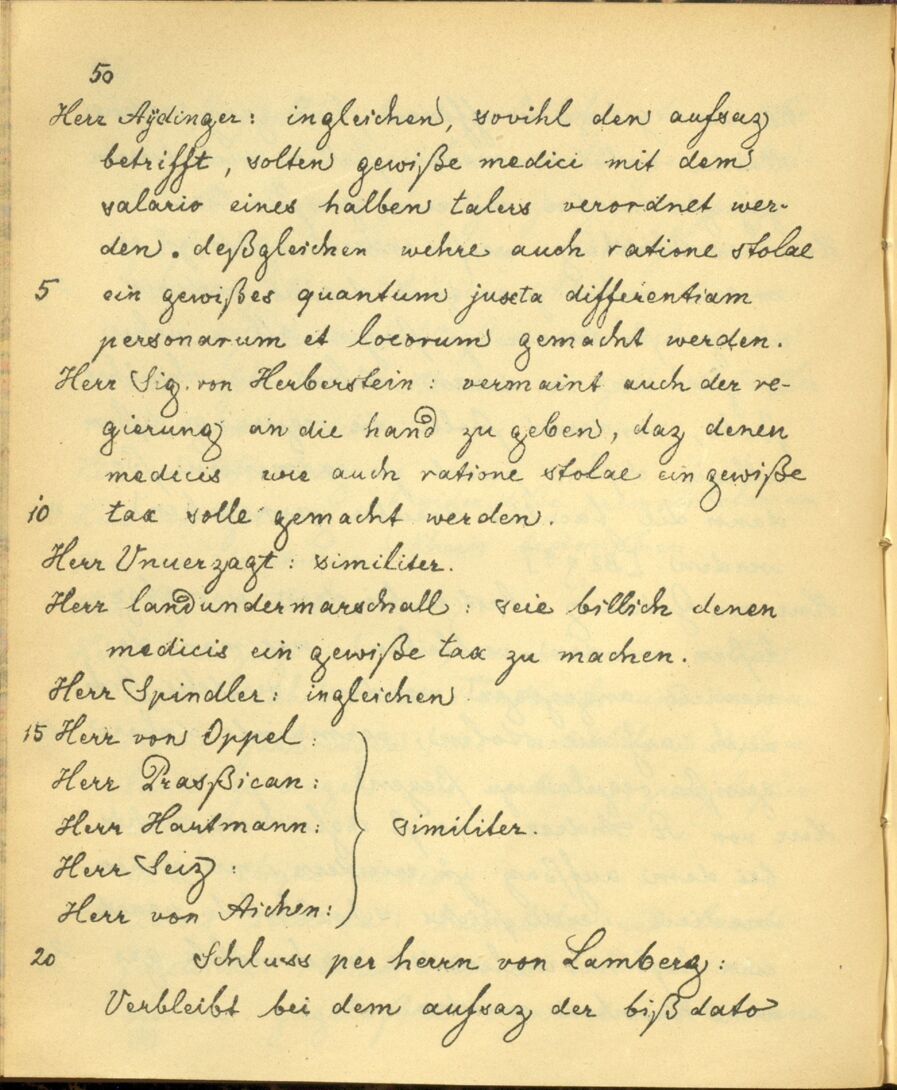 50
Herr Aÿdinger: ingleichen, sovihl den aufsaz
betrifft, solten gewiße medici mit dem
salario eines halben talers verordnet wer-
den. deßgleichen wehre auch ratione stolae
5 ein gewißes quantum juxta differentiam
personarum et locorum gemacht werden.
Herr Sig. von Herberstein: vermaint auch der re-
gierung an die hand zu geben, daz denen
medicis wie auch ratione stolae ein gewiße
10 tax solle gemacht werden.
Herr Unuerzagt: similiter.
Herr landundermarschall: seie billich denen
medicis ein gewiße tax zu machen.
Herr Spindler: ingleichen.
15 Herr von Oppel:
Herr Prasßican:
Herr Hartmann: similiter.
Herr Seiz:
Herr von Aichen:
20 Schluss per herrn von Lamberg:
Verbleibt bei dem aufsaz der biß dato